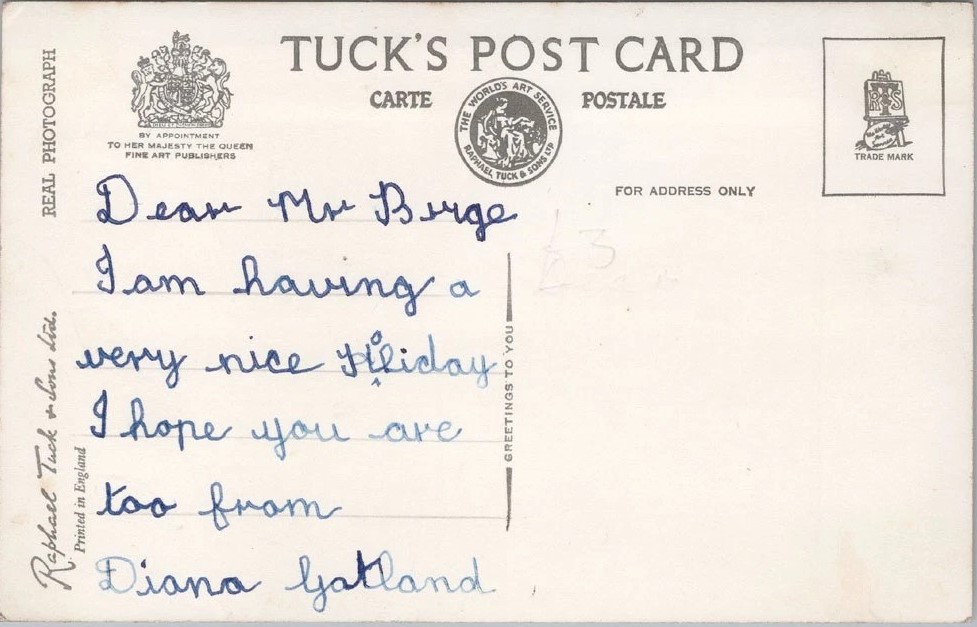 TUCK'S POST CARD
CARTE POSTALE
THE WORLD'S ART SERVICE
RAPHAEL TUCK & SONS LTD
BY APPOINTMENT
TO HER MAJESTY THE QUEEN
FINE ART PUBLISHERS
REAL PHOTOGRAPH
R T S
TRADE MARK
FOR ADDRESS ONLY
£3
Dear Mr Birge
I am having a
very nice Holiday
I hope you are
too from
Diana Gatland
GREETINGS TO YOU
Raphael Tuck & Sons Ltd.
Printed in England